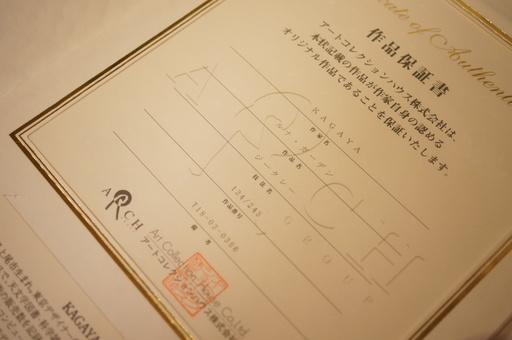 cate of Authenti
作品保証書
アートコレクションハウス株式会社は、
本状記載の作品が作家自身の認める
オリジナル作品であることを保証いたします。
KAGAYA
作家名
ルナ・ガーデン
作品名
ジークレー
技法名
134/245
作品番号
T18-03-0366
備考
ARCH
GROUP
ARCH
Art Collection House Co.,Ltd.
アートコレクションハウス株式会社
KAGAYA